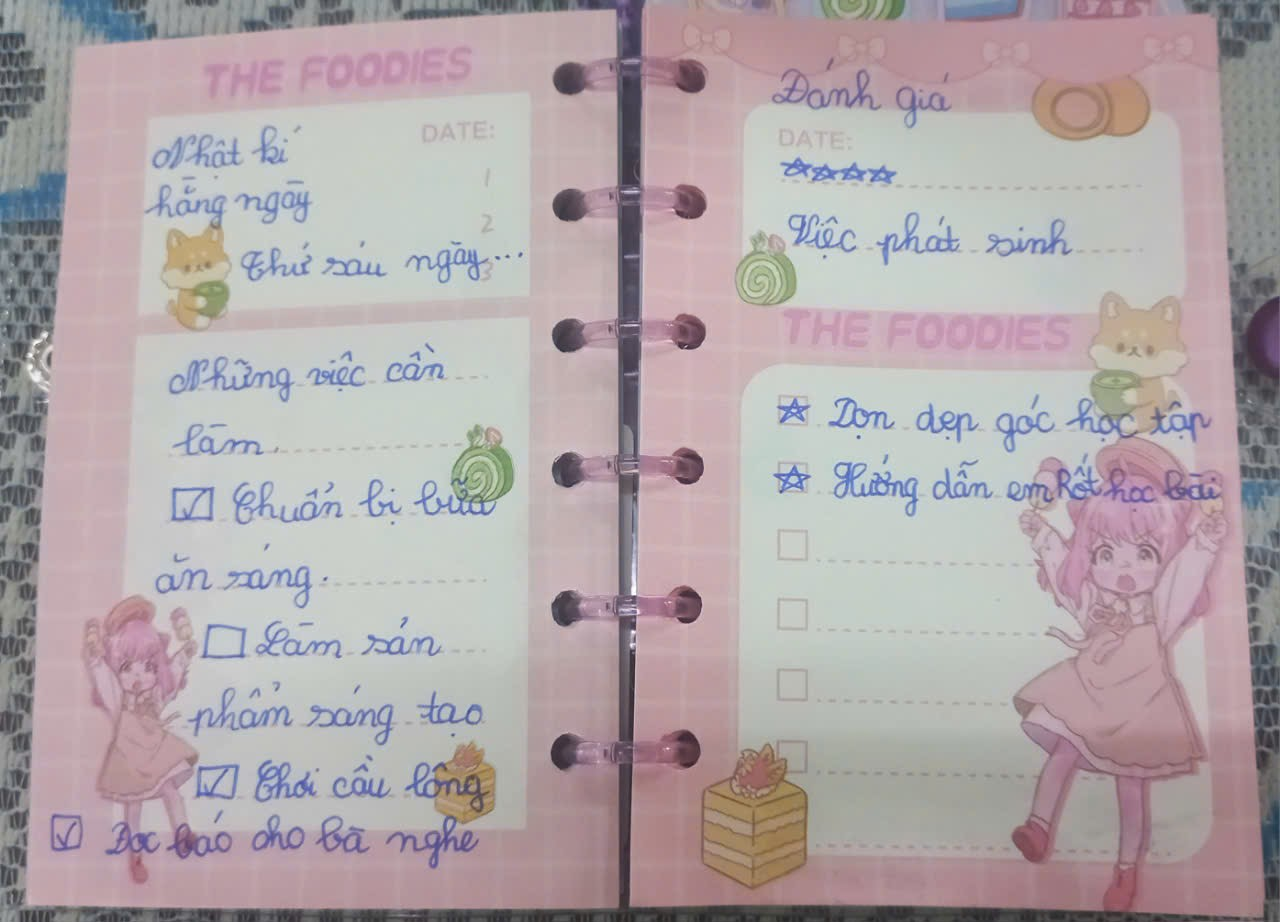 THE FOODIES
DATE:
Nhật kí
1
hằng ngày
2
Thứ sáu ngày...
3
Những việc cần
làm.
☑ Chuẩn bị bữa
ăn sáng.
☐ Làm sản
phẩm sáng tạo
☑ Chơi cầu lông
☑ Đọc báo cho bà nghe
Đánh giá
DATE:
☆☆☆☆
Việc phát sinh
THE FOODIES
☆ Dọn dẹp góc học tập
☆ Hướng dẫn em Rốt học bài